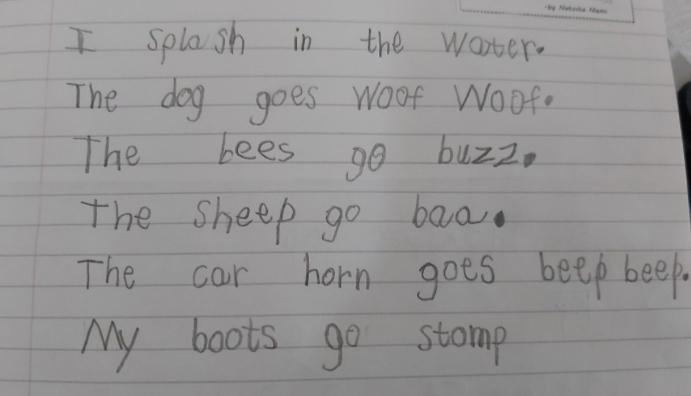 -by Natasha Niemi
I splash in the water.
The dog goes woof woof.
The bees go buzz.
The sheep go baa.
The car horn goes beep beep.
My boots go stomp